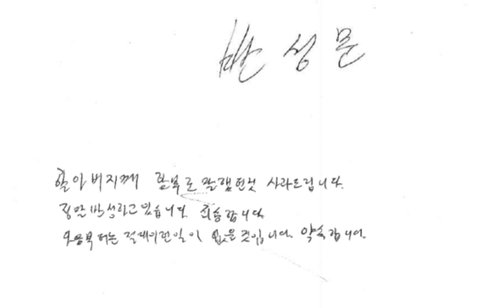 반 성 문
할아버지께 함부로 말했던것 사과드립니다.
정말 반성하고있습니다 죄송합니다
다음부터는 절대이런일이 없을것입니다. 약속합니다.